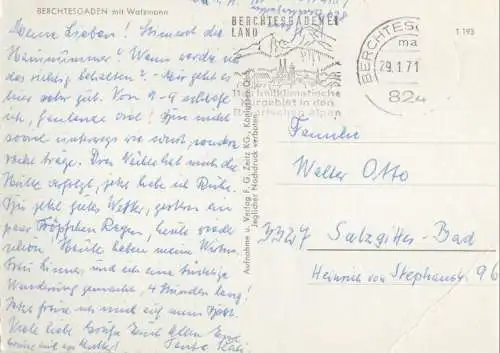 BERCHTESGADEN mit Watzmann
Meine Lieben! Stimmt die
Hausnummer? Wann werde ich
das richtig behalten? Mir geht es
sehr gut. Von 9-9 schlafe
ich, Faulenze sonst! Bin nicht
soviel unterwegs wie sonst, sondern
Heute verfolgt, jetzt habe ich Ruhe.
Bis jetzt gutes Wetter, gestern ein
paar Tröpfchen Regen, heute wieder
schön. Heute haben meine Wirtin,
Frau Linner, und ich eine tüchtige
Wanderung gemacht, 4 Stunden lang!
Jetzt freue ich mich auf mein Bett.
Viele liebe Grüße Euch Allen Eure
Tante
BERCHTESGADENER
LAND
Das heilklimatische
Kurgebiet in den
Bayerischen Alpen
BERCHTESG
ma
29.1.71
824
T 193
Aufnahme u. Verlag F. G. Zeitz KG., Königssee/Obb.
Jeglicher Nachdruck verboten.
Familie
Walter Otto
3327 Salzgitter-Bad
Heinrich von Stephanstr. 96